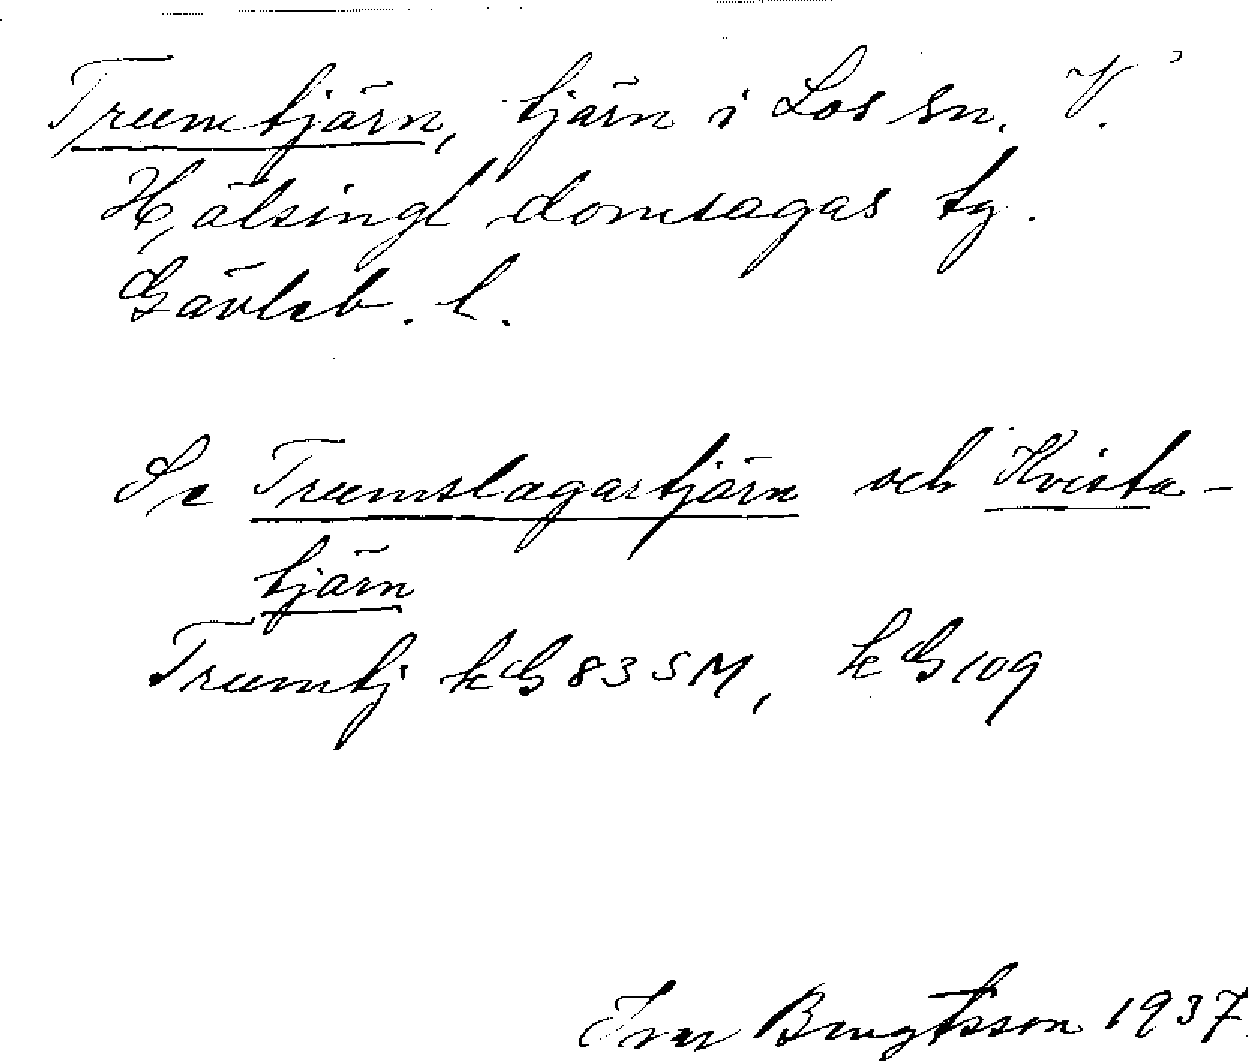 Trumtjärn, tjärn i Los sn. V.
Hälsingl domsagas tg.
Gävleb. l.
Se Trumslagartjärn och Kvista-
tjärn
Trumtj kG 83 SM, kG 109
Ivar Bengtsson 1937